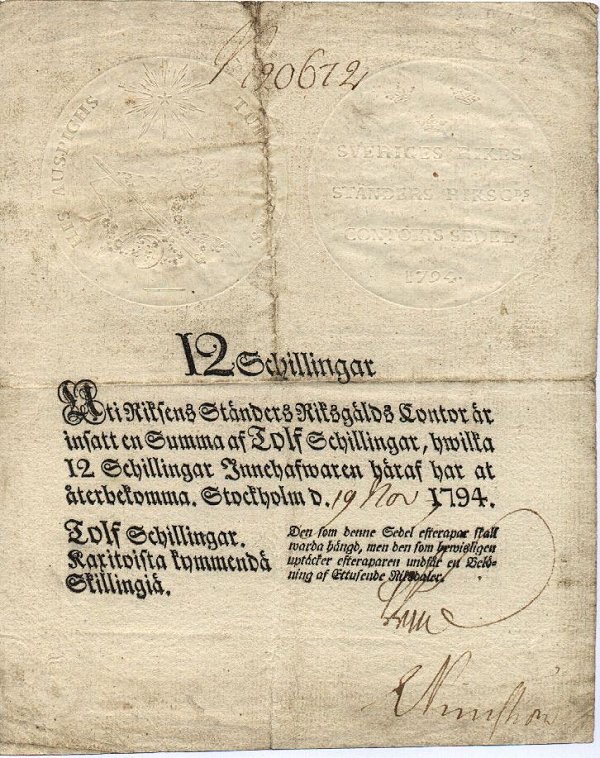 90672
HIS AUSPICIIS
SVERIGES RIKES
STÄNDERS RIKSG:S
CONTOIRS SEDEL
1794
12 Schillingar
Uti Riksens Ständers Riksgälds Contor är
insatt en Summa af Tolf Schillingar, hwilka
12 Schillingar Innehafwaren häraf har at
återbekomma. Stockholm d. 19 Nov 1794.
Tolf Schillingar.
Kaxitoista kymmendä
Skillingiä.
Den som denne Sedel efterapar skall
warda hängd, men den som bewisligen
uptäcker efteraparen undfår en Belö-
ning af Ettusende Riksdaler.